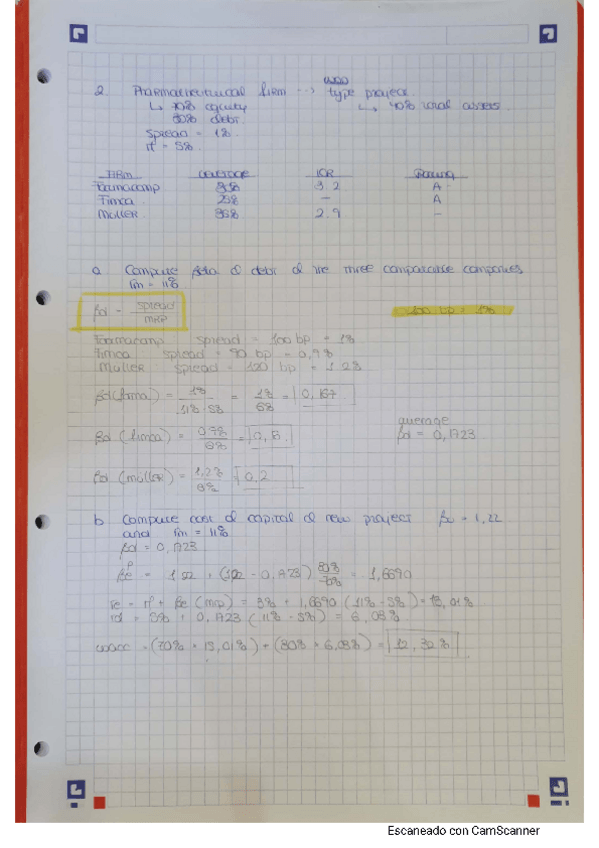 2. Pharmaceutical firm --> type project.
↳ 70% equity ↳ 40% total assets.
30% debt.
Spread = 1%
rf = 5%
FIRM LEVERAGE ICR Rating
Farmacamp 3.2 A
Timca 25% - A
Müller 2.9 -
a Compute beta of debt of the three comparable companies
rm = 11%
βd = spread / MRP
100 bp = 1%
Farmacamp spread = 100 bp = 1%
Timca spread = 90 bp = 0,9%
Müller spread = 120 bp = 1.2%
βd (farma) = 1% / 11%-5% = 1% / 6% = 0,167
average
βd (timca) = 0.9% / 6% = βd = 0,1723
βd (müller) = 1,2% / 6% = 0,2
b Compute cost of capital of new project βu = 1,22
and rm = 11%
βd = 0,1723
βe = 1,22 + (1,22 - 0,1723) 30% / 70% = 1,6690
re = rf + βe (MRP) = 5% + 1,6690 (11% - 5%) = 15,01%
rd = 5% + 0,1723 (11% - 5%) = 6,03%
WACC = (70% * 15,01%) + (30% * 6,03%) = 12,32%
Escaneado con CamScanner